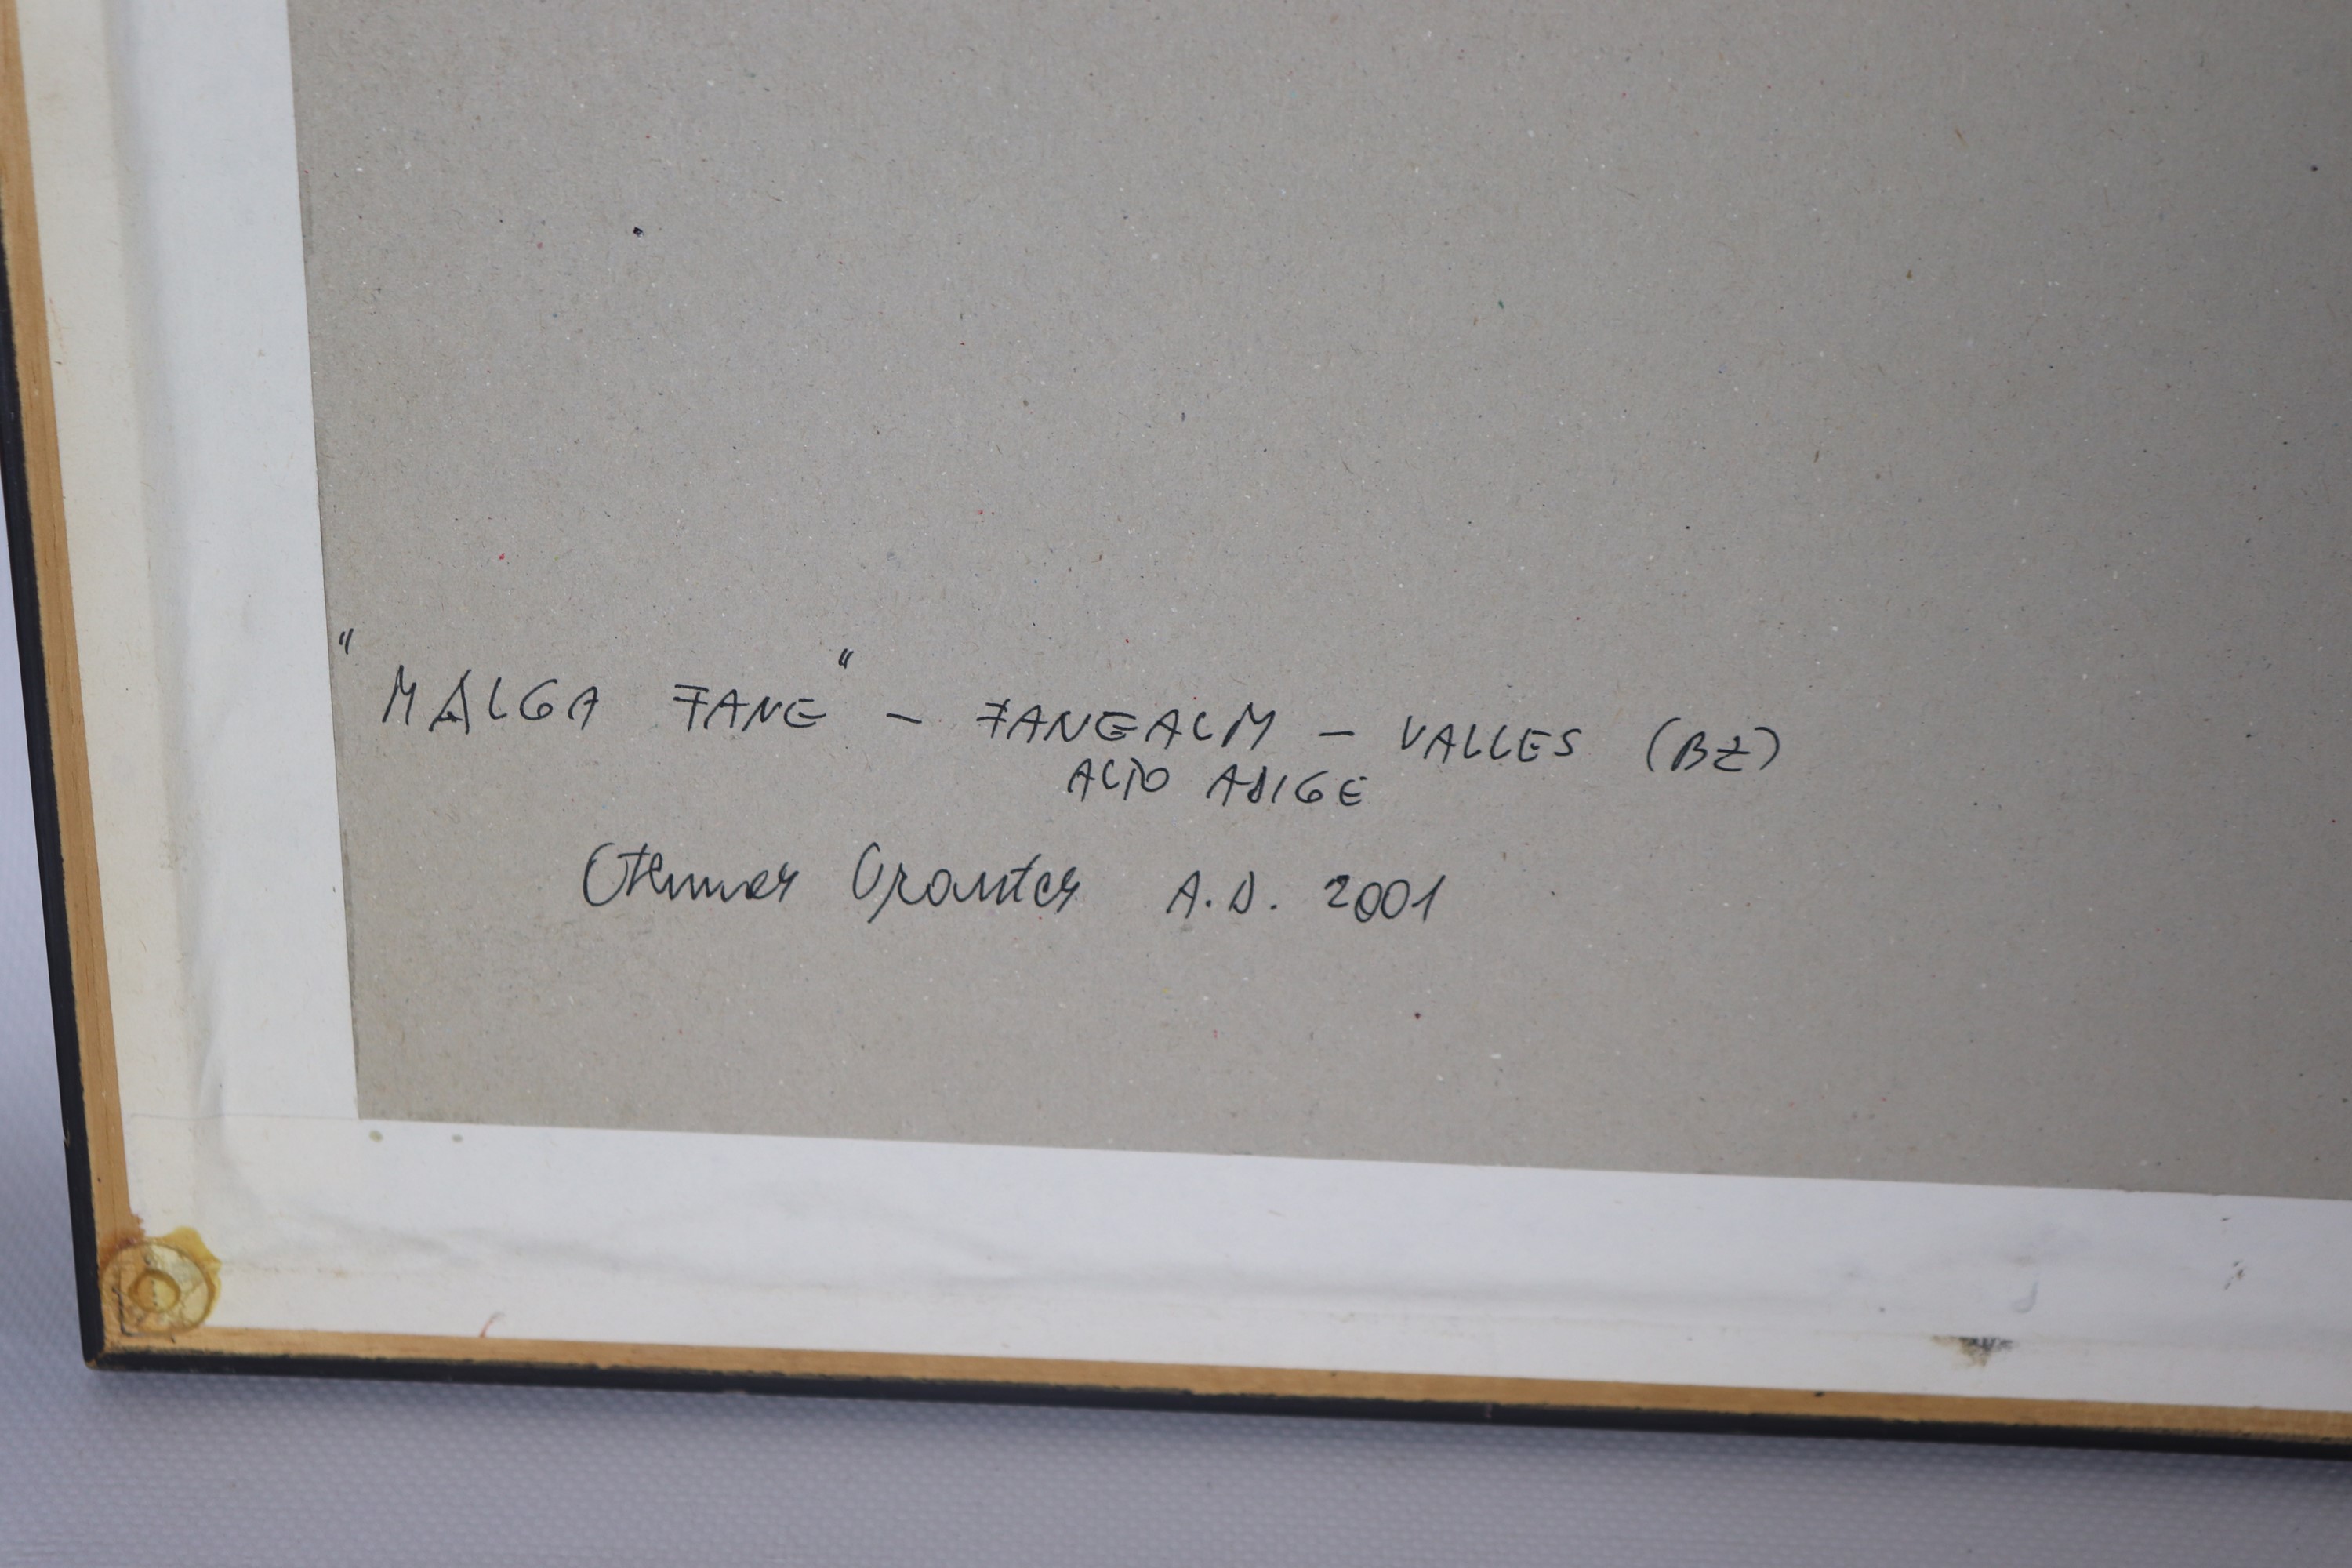 "MALGA FANE" – FANEALM – VALLES (BZ)
ALTO ADIGE
A.D. 2001